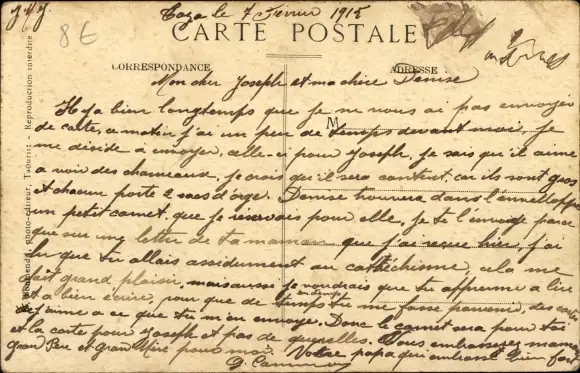 J. M. J.
Taza le 7 Février 1915
8€
CARTE POSTALE
CORRESPONDANCE
ADRESSE
Mon cher Joseph et ma chère Denise
Il y a bien longtemps que je ne vous ai pas envoyer
de carte, ce matin j'ai un peu de temps devant moi, je
me décide à envoyer, celle-ci pour Joseph, je sais qu'il aime
a voir des chameaux, je crois qu'il sera content, car ils sont gros
et chacun porte 2 sacs d'orge. Denise trouvera dans l'enveloppe
un petit carnet, que je réservais pour elle, je te l'envoie parce
que sur une lettre de ta maman que j'ai reçue hier, j'ai
lu que tu allais assidument au cathéchisme, cela me
fait grand plaisir, mais aussi je voudrais que tu apprenne a lire
et a bien écrire, pour que de temps en temps tu me fasse parvenir, des cartes
j'aime a ce que tu m'en envoye. Donc le carnet sera pour toi
et la carte pour Joseph et pas de querelles. Vous embrasserez maman
grand Père et grand Mère pour moi. Votre papa qui embrasse bien fort
photo-éditeur, Taourirt - Reproduction interdite